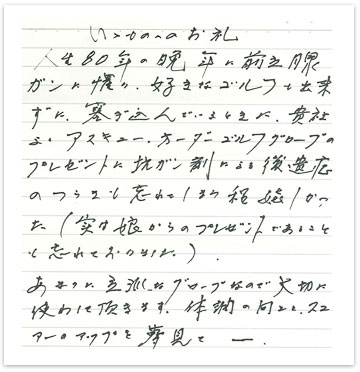 いくつかのお礼
人生80年の晩年に前立腺
ガンに懼り、好きなゴルフも出来
ずに、塞ぎ込んでいるときに、貴社
よりアスキュー、オーダーゴルフグローブの
プレゼントに抗ガン剤による後遺症
のつらさも忘れてしまう程嬉しかっ
た（実は娘からのプレゼントであること
も忘れておりました）。
あまりに立派なグローブなので大切に
使わせて頂きます。体調の向上と、スコ
アーのアップを夢見て ー.